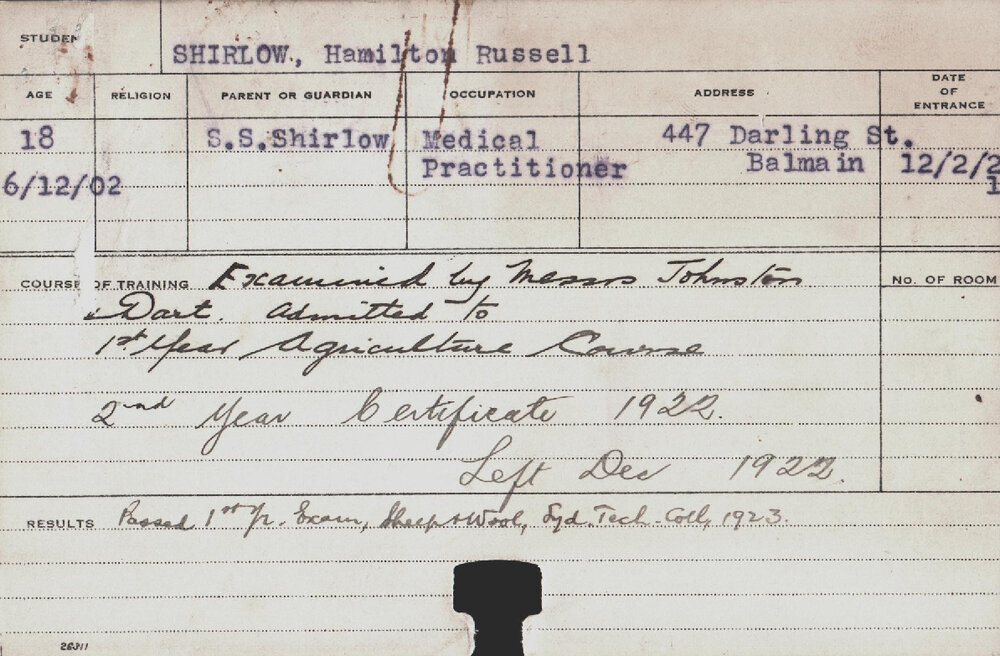 STUDENT
SHIRLOW., Hamilton Russell
AGE RELIGION PARENT OR GUARDIAN OCCUPATION ADDRESS DATE OF ENTRANCE
18 S.S.Shirlow Medical 447 Darling St.
Practitioner Balmain 12/2/2
6/12/02 1
COURSE OF TRAINING Examined by Messrs Johnston No. OF ROOM
& Dart. Admitted to
1st Year Agriculture Course
2nd Year Certificate 1922.
Left Dec 1922.
RESULTS Passed 1st Yr. Exam, Sheep & Wool, Syd. Tech. Coll, 1923.
26311